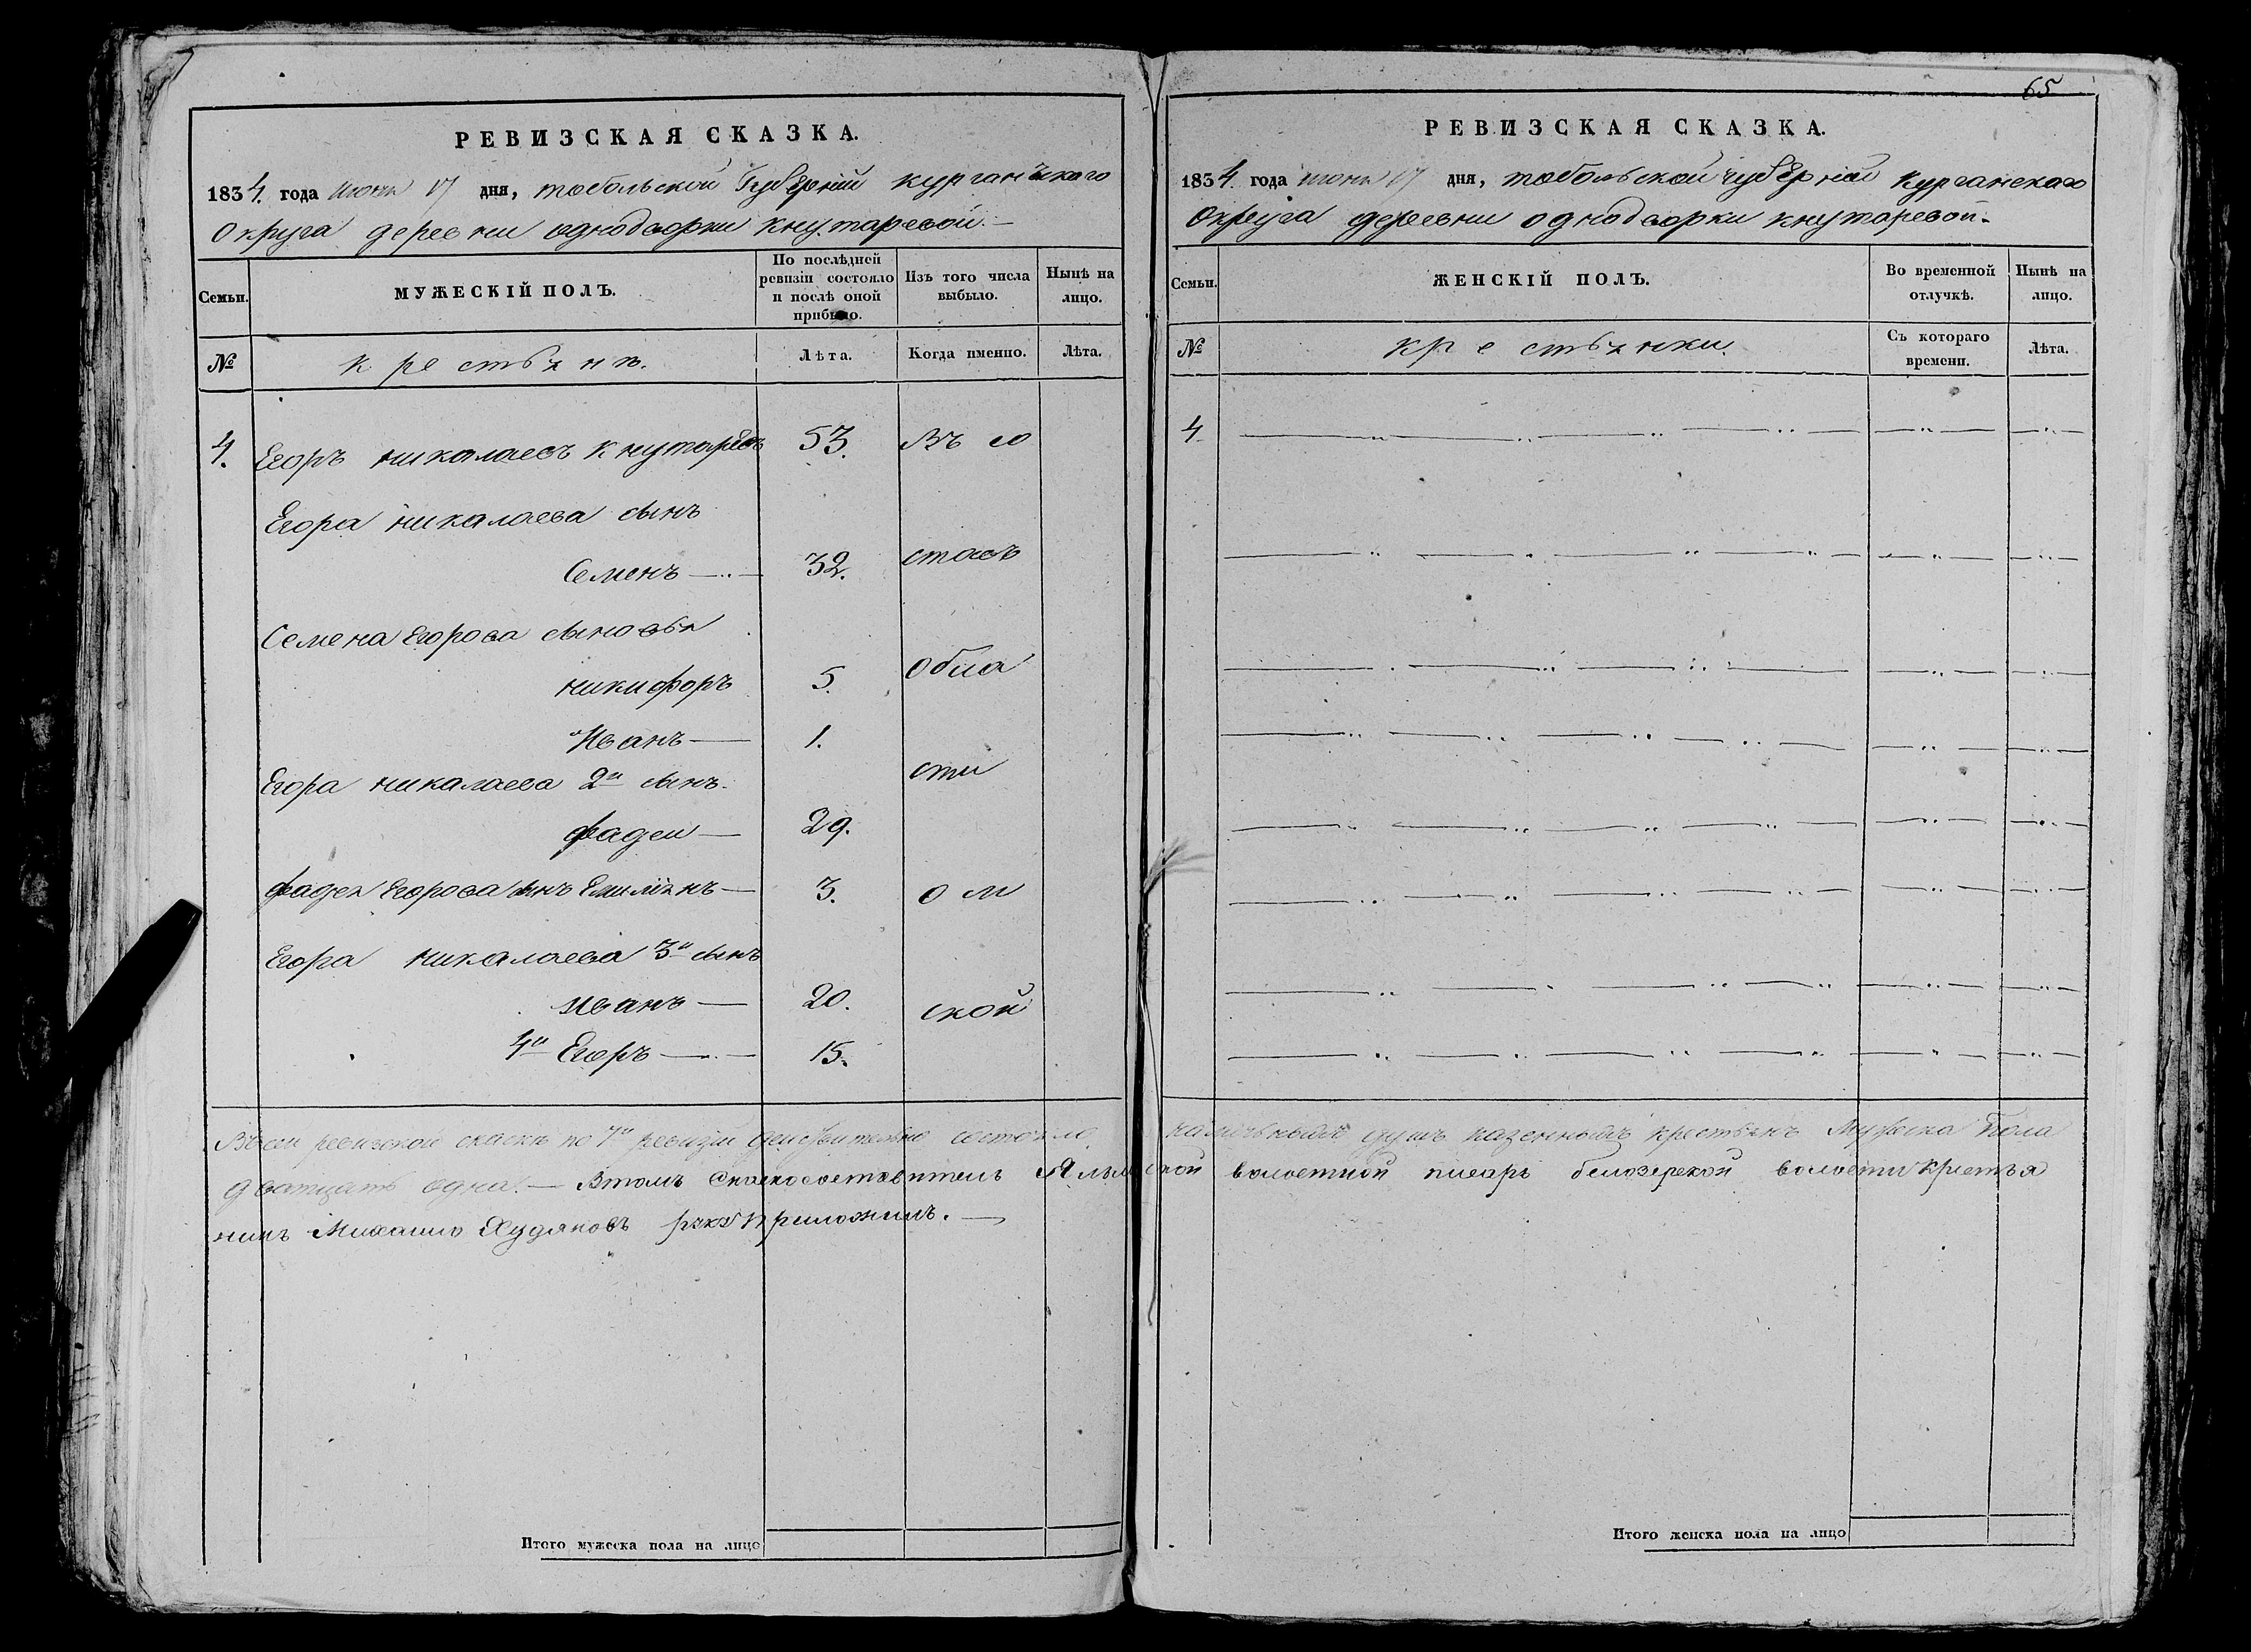 РЕВИЗСКАЯ СКАЗКА.
1834. года июня 17 дня, тобольской Губерніи курганского
округа деревни однодворки кнутаревой. —
Семьи.
МУЖЕСКІЙ ПОЛЪ.
По послѣдней ревизіи состояло и послѣ оной прибыло.
Изъ того числа выбыло.
Нынѣ на лицо.
№
крестьянъ.
Лѣта.
Когда именно.
Лѣта.
4. Егоръ николаевъ кнутаревъ 53. Въ со
Егора николаева сынъ
Семенъ — 32. ставъ
Семена Егорова сыновья
никифоръ 5. обла
Иванъ — 1.
Егора николаева 2й сынъ. сти
фадеи — 29.
фадея Егорова сынъ Емилянъ — 3. ом
Егора николаева 3й сынъ
иванъ — 20. ской
4й Егоръ — 15.
Итого мужеска пола на лицо
65
РЕВИЗСКАЯ СКАЗКА.
1834. года июня 17 дня, тобольской губерніи курганскаго
округа деревни однодворки кнутаревой.
Семьи.
ЖЕНСКІЙ ПОЛЪ.
Во временной отлучкѣ.
Нынѣ на лицо.
№
крестьянки.
Съ котораго времени.
Лѣта.
4.
Въсеи ревизской скаскѣ по 7й ревизіи действително состояло наличнымъ душъ казенныхъ крестьянъ Мужеска Пола
дватцать одна. — Втомъ волостной писарь белозерской волости крестья
нинъ Михаило Худяковъ руку приложилъ. —
Итого женска пола на лицо